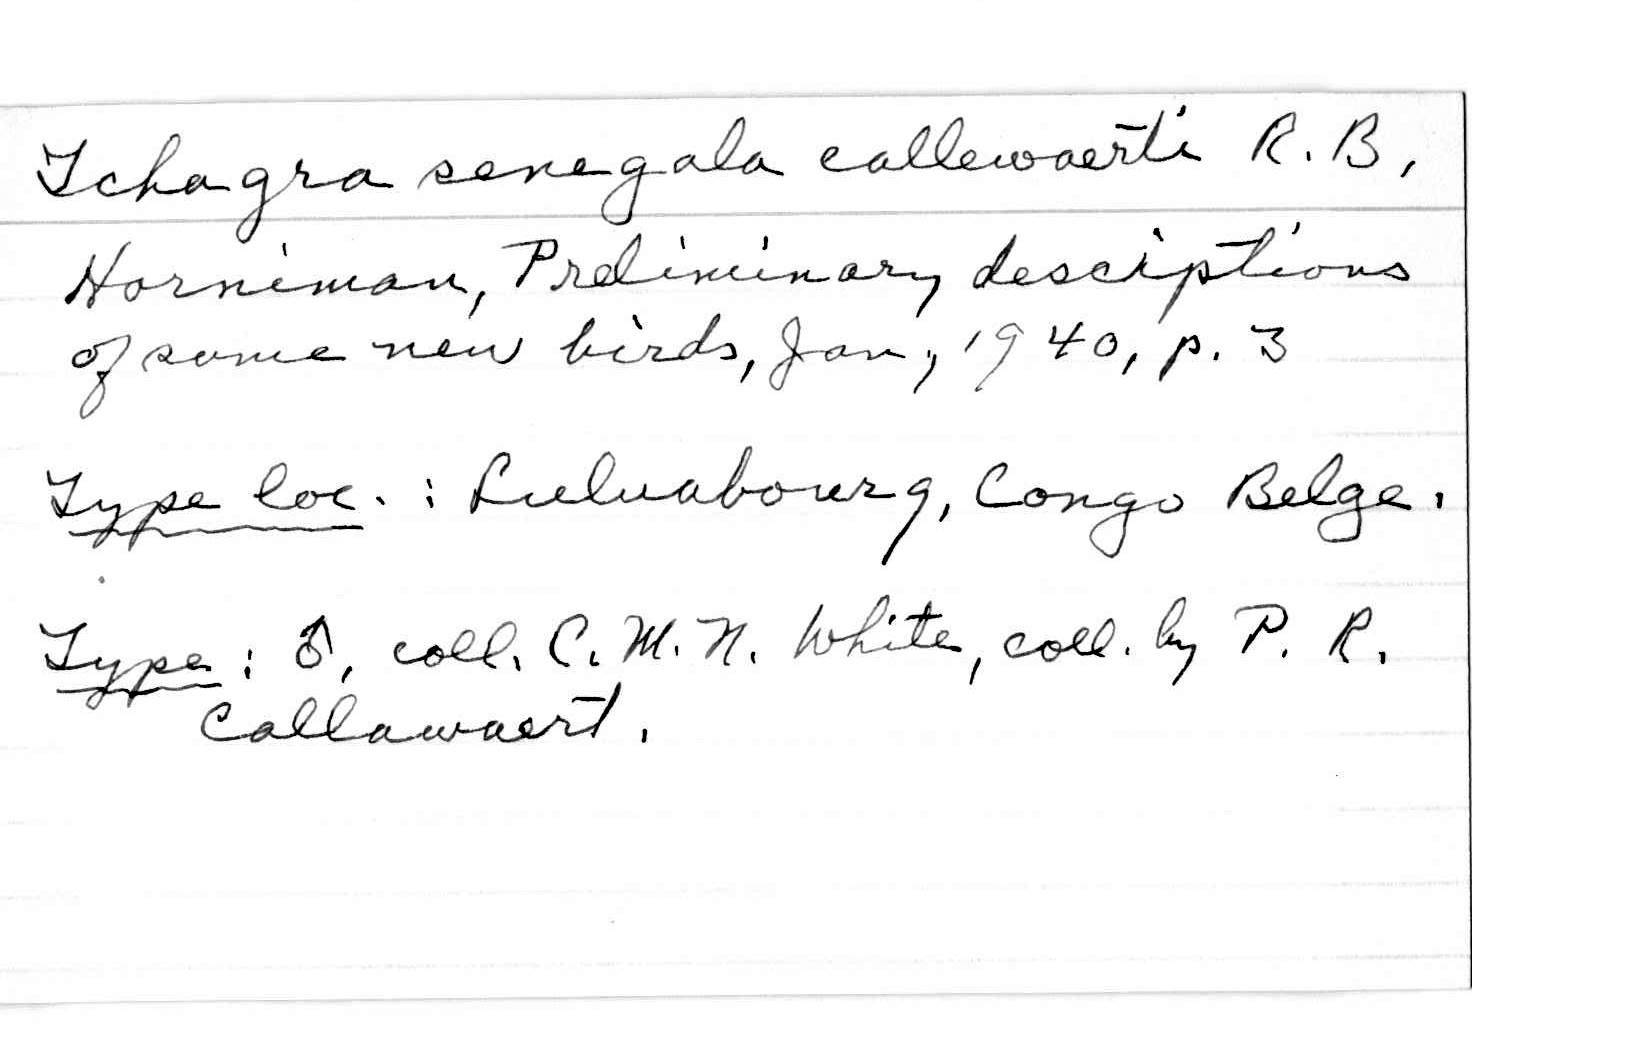 Tchagra senegala callewaerti R. B,
Horniman, Preliminary descriptions
of some new birds, Jan, 1940, p. 3
Type loc. : Luluabourg, Congo Belge.
Type : ♂, coll. C. M. N. White, coll. by P. R.
Callawaert.